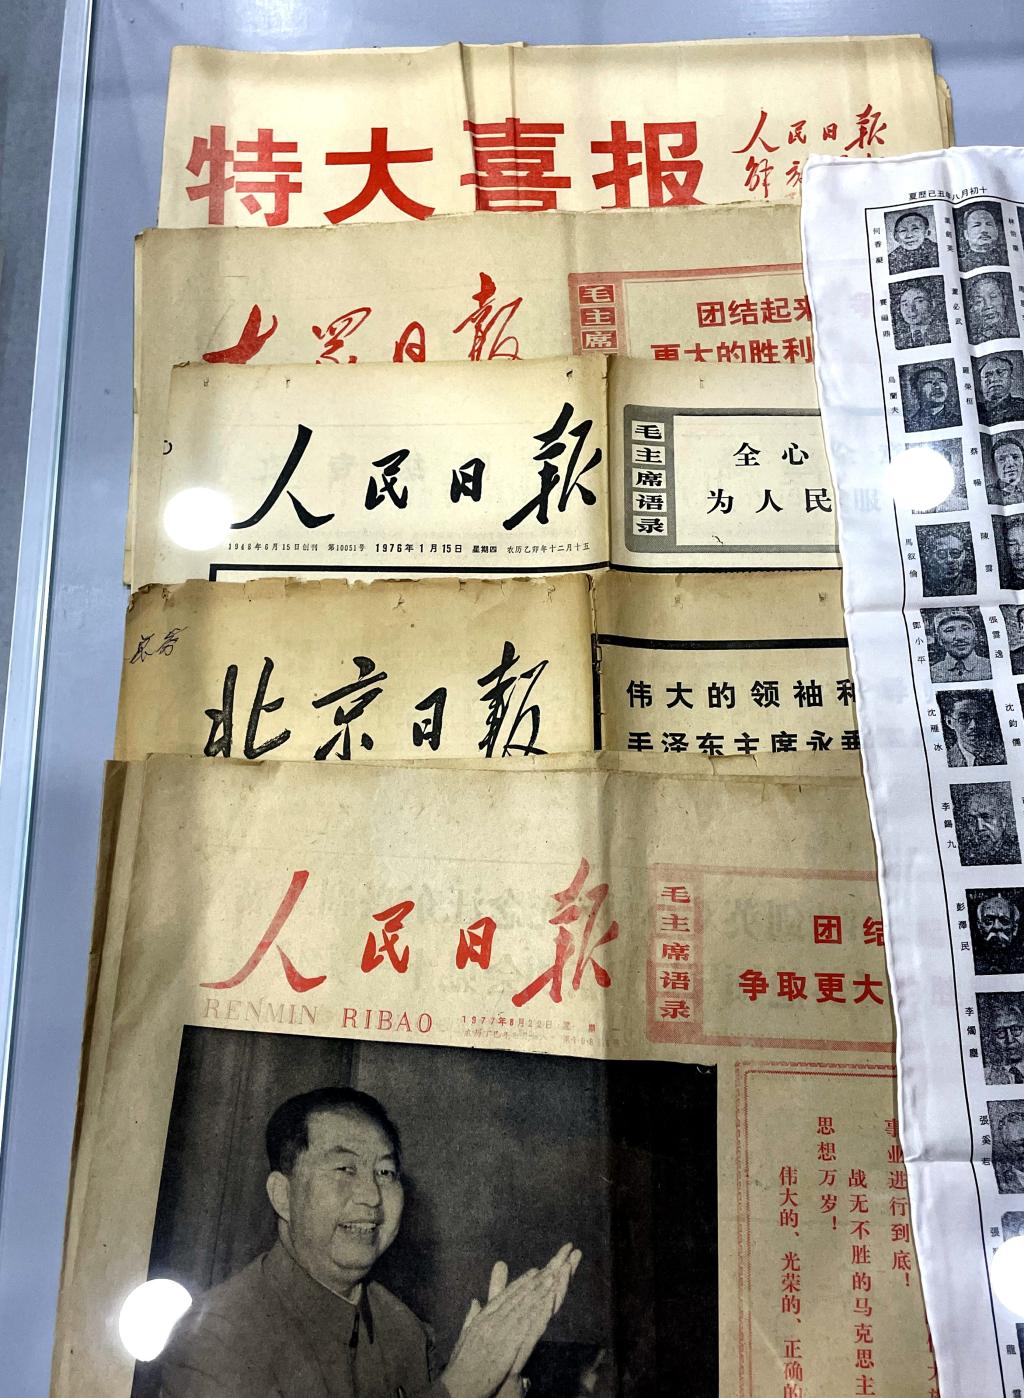 特大喜报
人民日报
解放
大众日报
毛主席
团结起来
更大的胜利
人民日报
1948年6月15日创刊 第10051号 1976年1月15日 星期四 农历乙卯年十二月十五
毛主席语录
全心
为人民
北京日报
伟大的领袖和
毛泽东主席永垂
人民日报
RENMIN RIBAO
1977年8月22日
毛主席语录
团结
争取更大
事业进行到底！
战无不胜的马克思主
思想万岁！
伟大的、光荣的、正确的
夏歷己丑年八月初十
何香凝
賽福鼎
董必武
烏蘭夫
羅榮桓
蔡暢
馬叙倫
陳雲
鄧小平
張雲逸
沈雁冰
沈鈞儒
李錫九
彭澤民
李燭塵
張奚若
龍